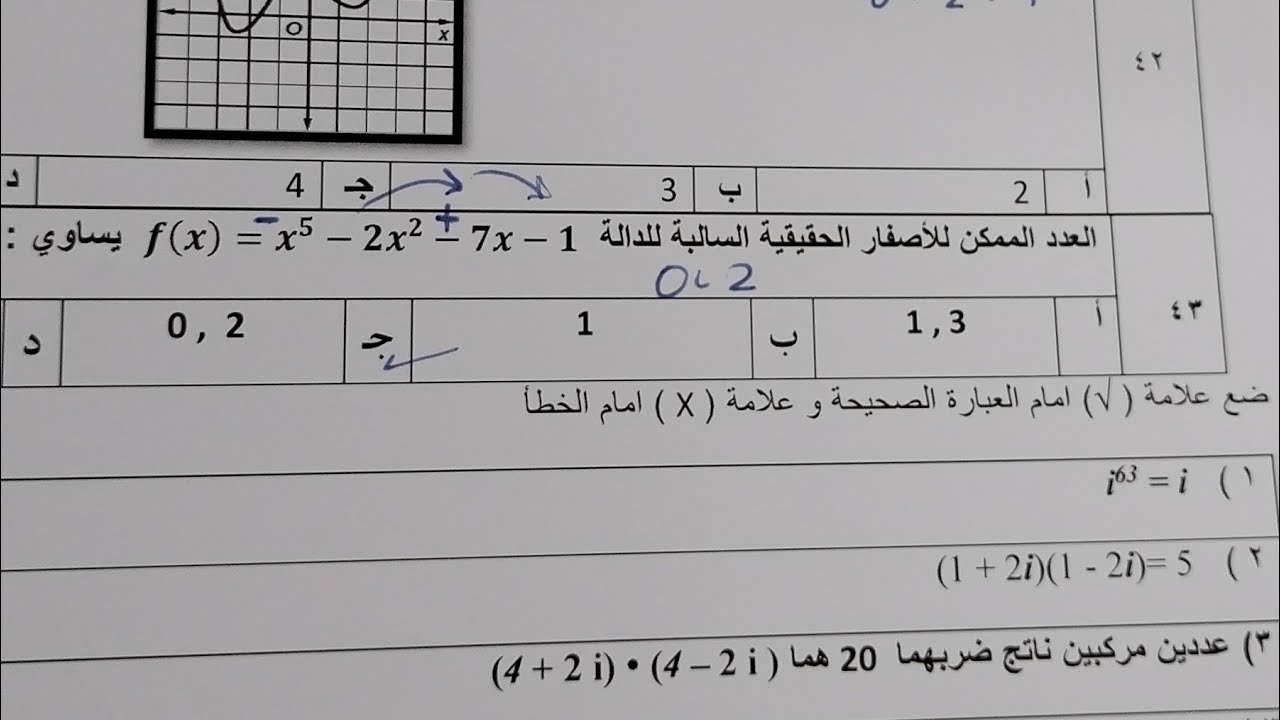 ٤٢
O
x
أ 2 ب 3 جـ 4 د
العدد الممكن للأصفار الحقيقية السالبة للدالة f(x) = x⁵ − 2x² − 7x − 1 يساوي :
− +
0، 2
٤٣
أ 1 , 3 ب 1 جـ 0 , 2 د
ضع علامة ( √ ) امام العبارة الصحيحة و علامة ( X ) امام الخطأ
١ ) i⁶³ = i
٢ ) (1 + 2i)(1 - 2i)= 5
٣) عددين مركبين ناتج ضربهما 20 هما (4 + 2 i) • (4 – 2 i )